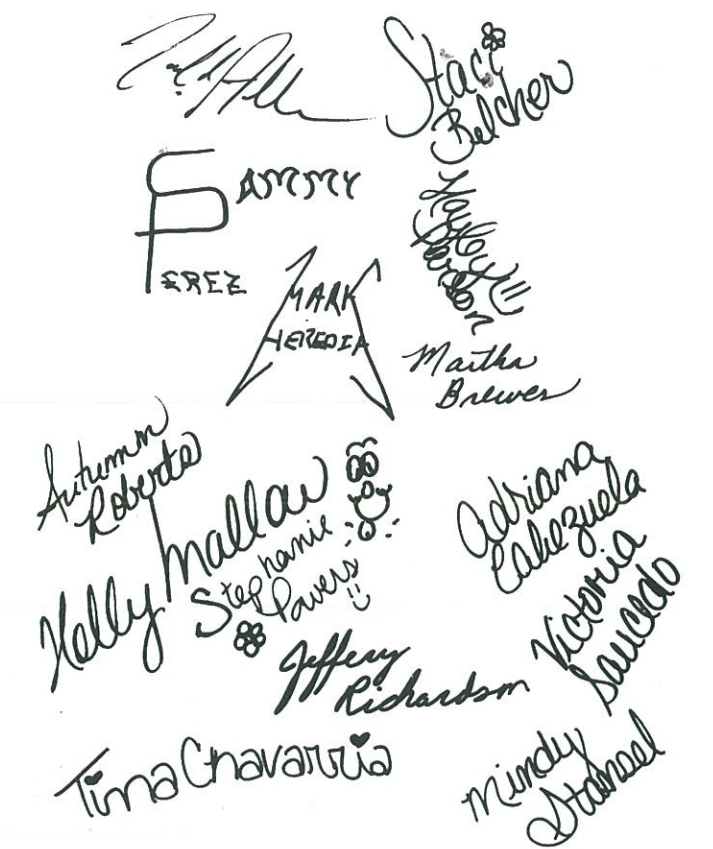 Staci
Belcher
Sammy
Perez
Mark
Heredia
Martha
Brewer
Autumn
Roberts
Kelly Mallow
Stephanie
Powers
Adriana
Cabezuela
Victoria
Saucedo
Jeffery
Richardson
Tina Chavarria
Mindy
Stansel